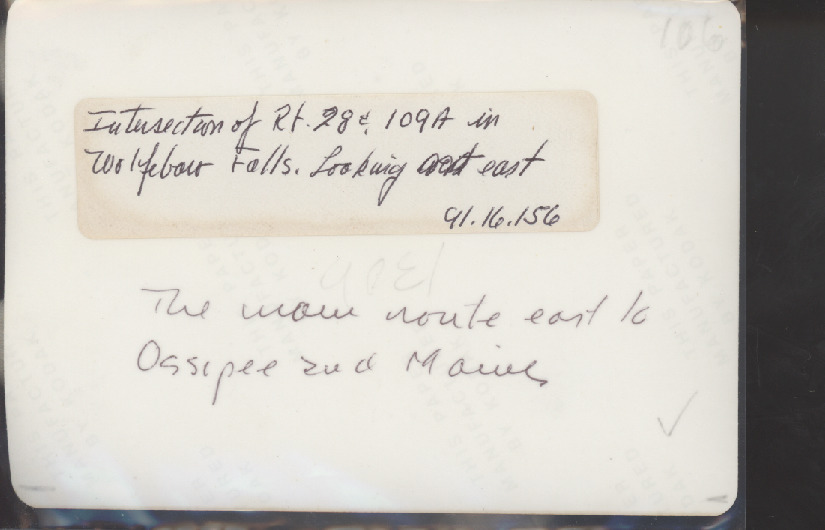 106
Intersection of Rt. 28 & 109A in
Wolfeboro Falls. Looking east
91.16.156
The main route east to
Ossipee and Maine
THIS PAPER
MANUFACTURED
BY KODAK